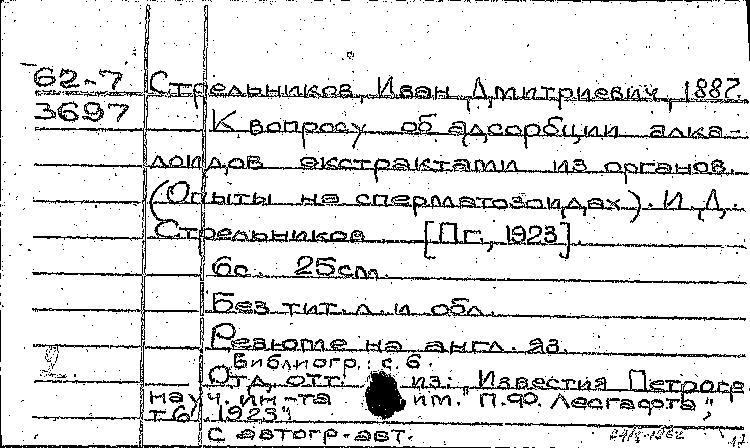 62-7 Стрельников, Иван Дмитриевич, 1887.
3697 К вопросу об адсорбции алка-
лоидов экстрактами из органов.
(Опыты на сперматозоидах). И.Д.
Стрельников [Пг., 1923].
6с. 25см.
Без тит. л. и обл.
Резюме на англ. яз.
2. Библиогр.: с. 6.
Отд. отт. из: "Известия Петрогр.
науч. ин-та им. П.Ф. Лесгафта",
т 6, 1923".
с автогр. авт.